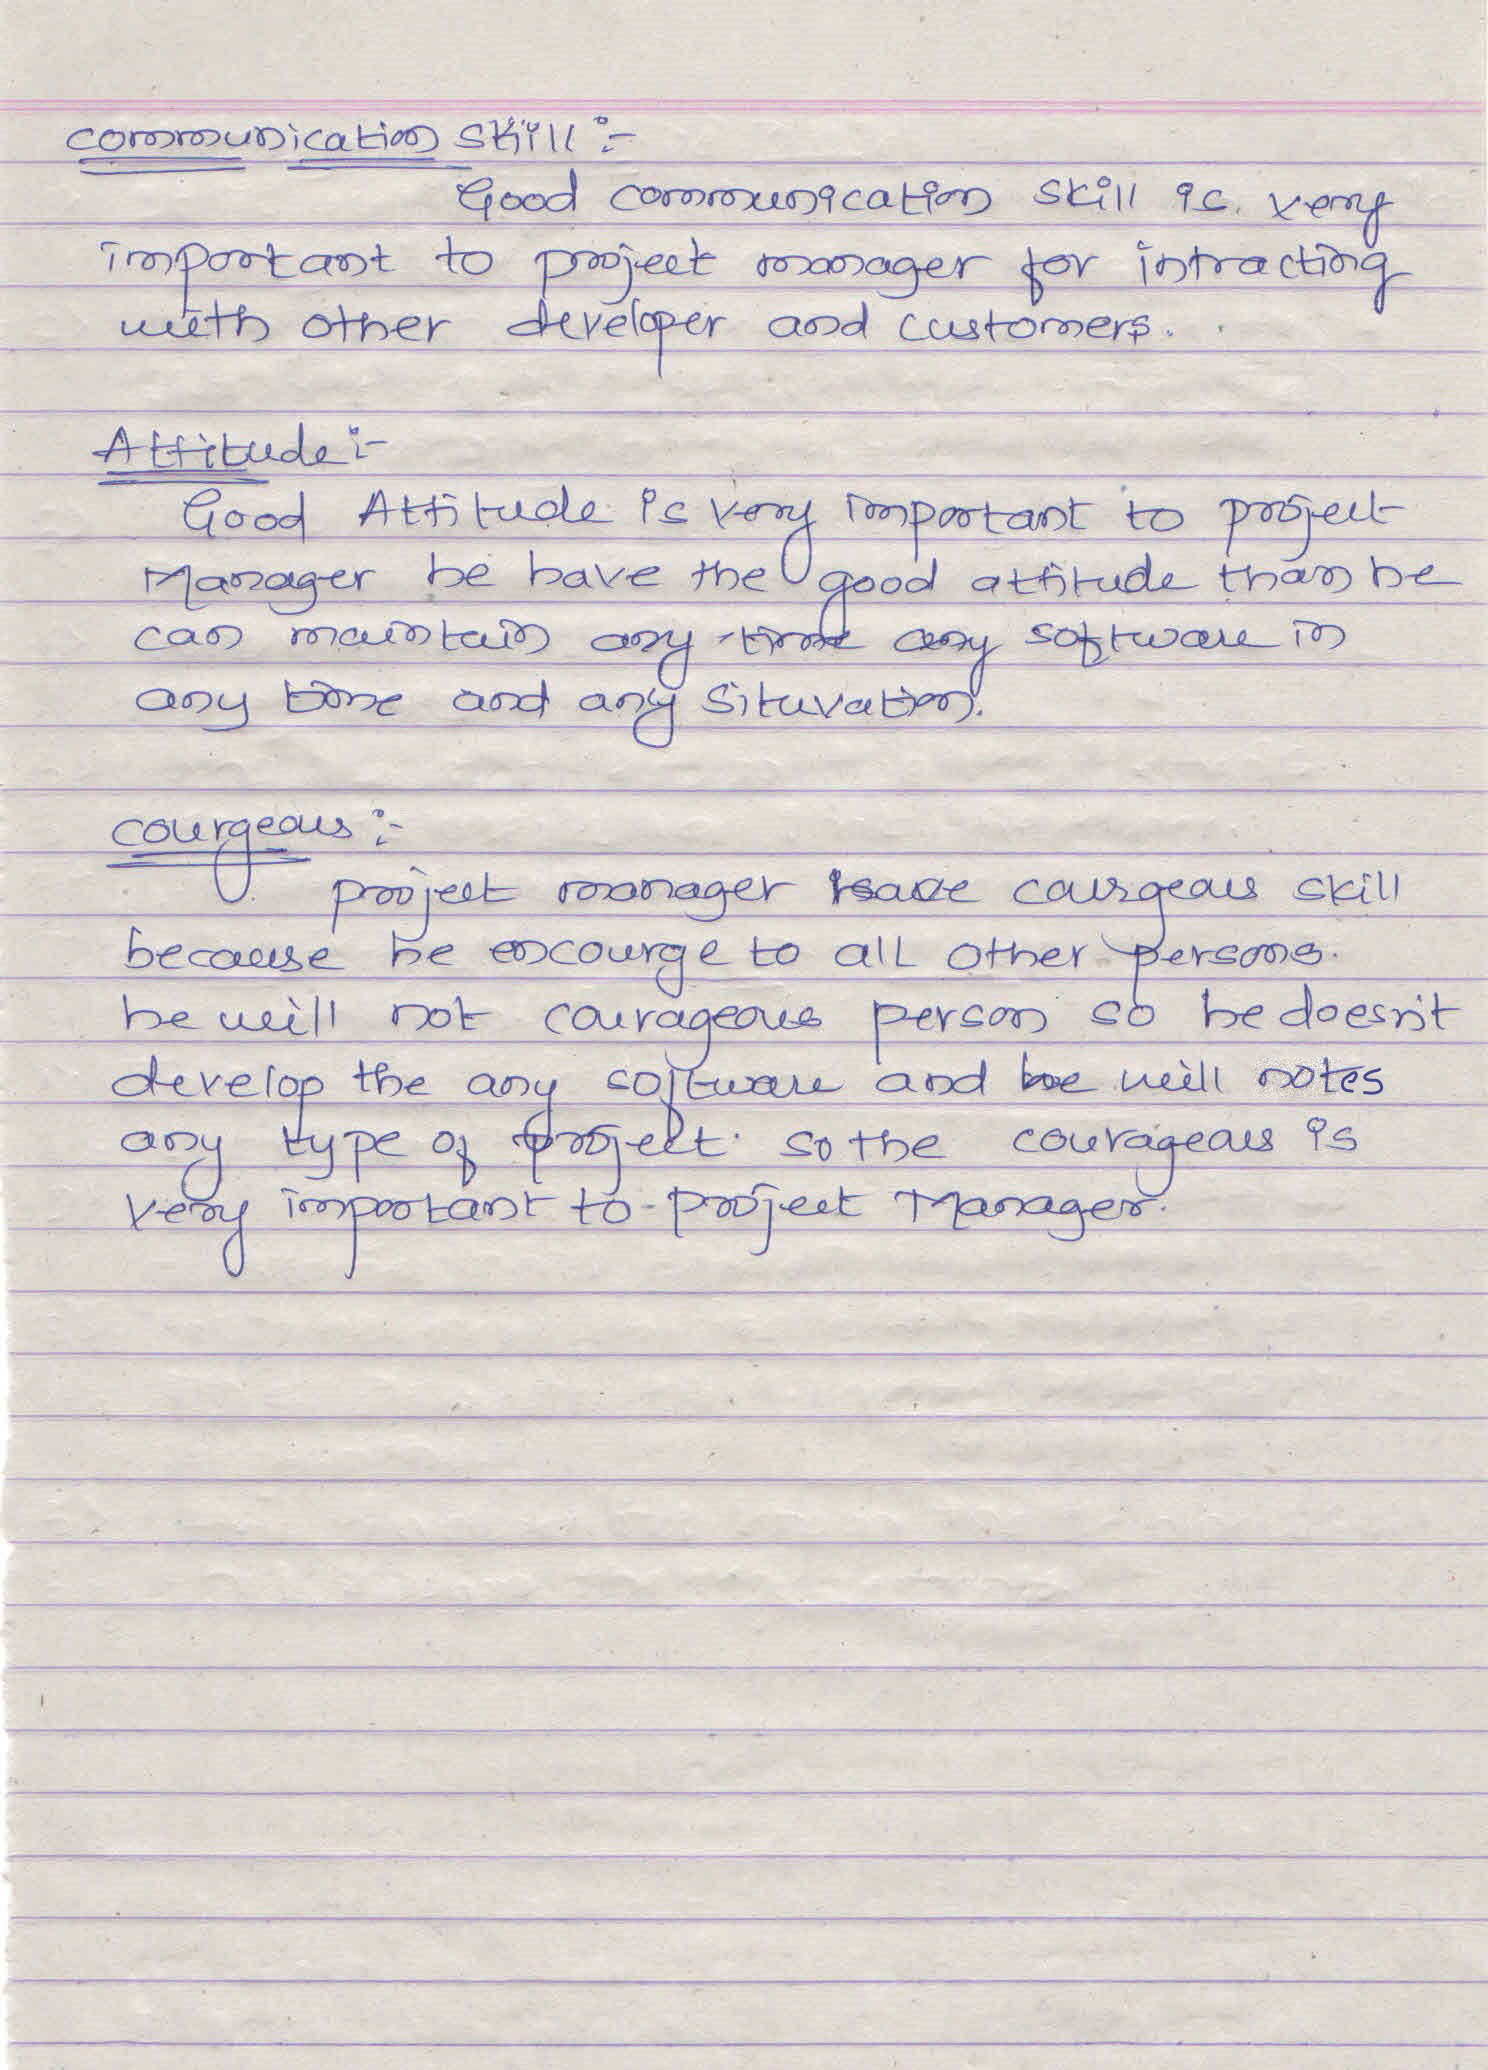 communication skill :-
Good communication skill is very
important to project manager for intracting
with other developer and customers.
Attitude :-
Good Attitude is very important to project
Manager he have the good attitude than he
can maintain any time any software in
any time and any situvation.
courgeous :-
project manager have courgeous skill
because he encourge to all other persons.
he will not courageous person so he doesn't
develop the any software and he will notes
any type of project. so the courageous is
very important to project Manager.